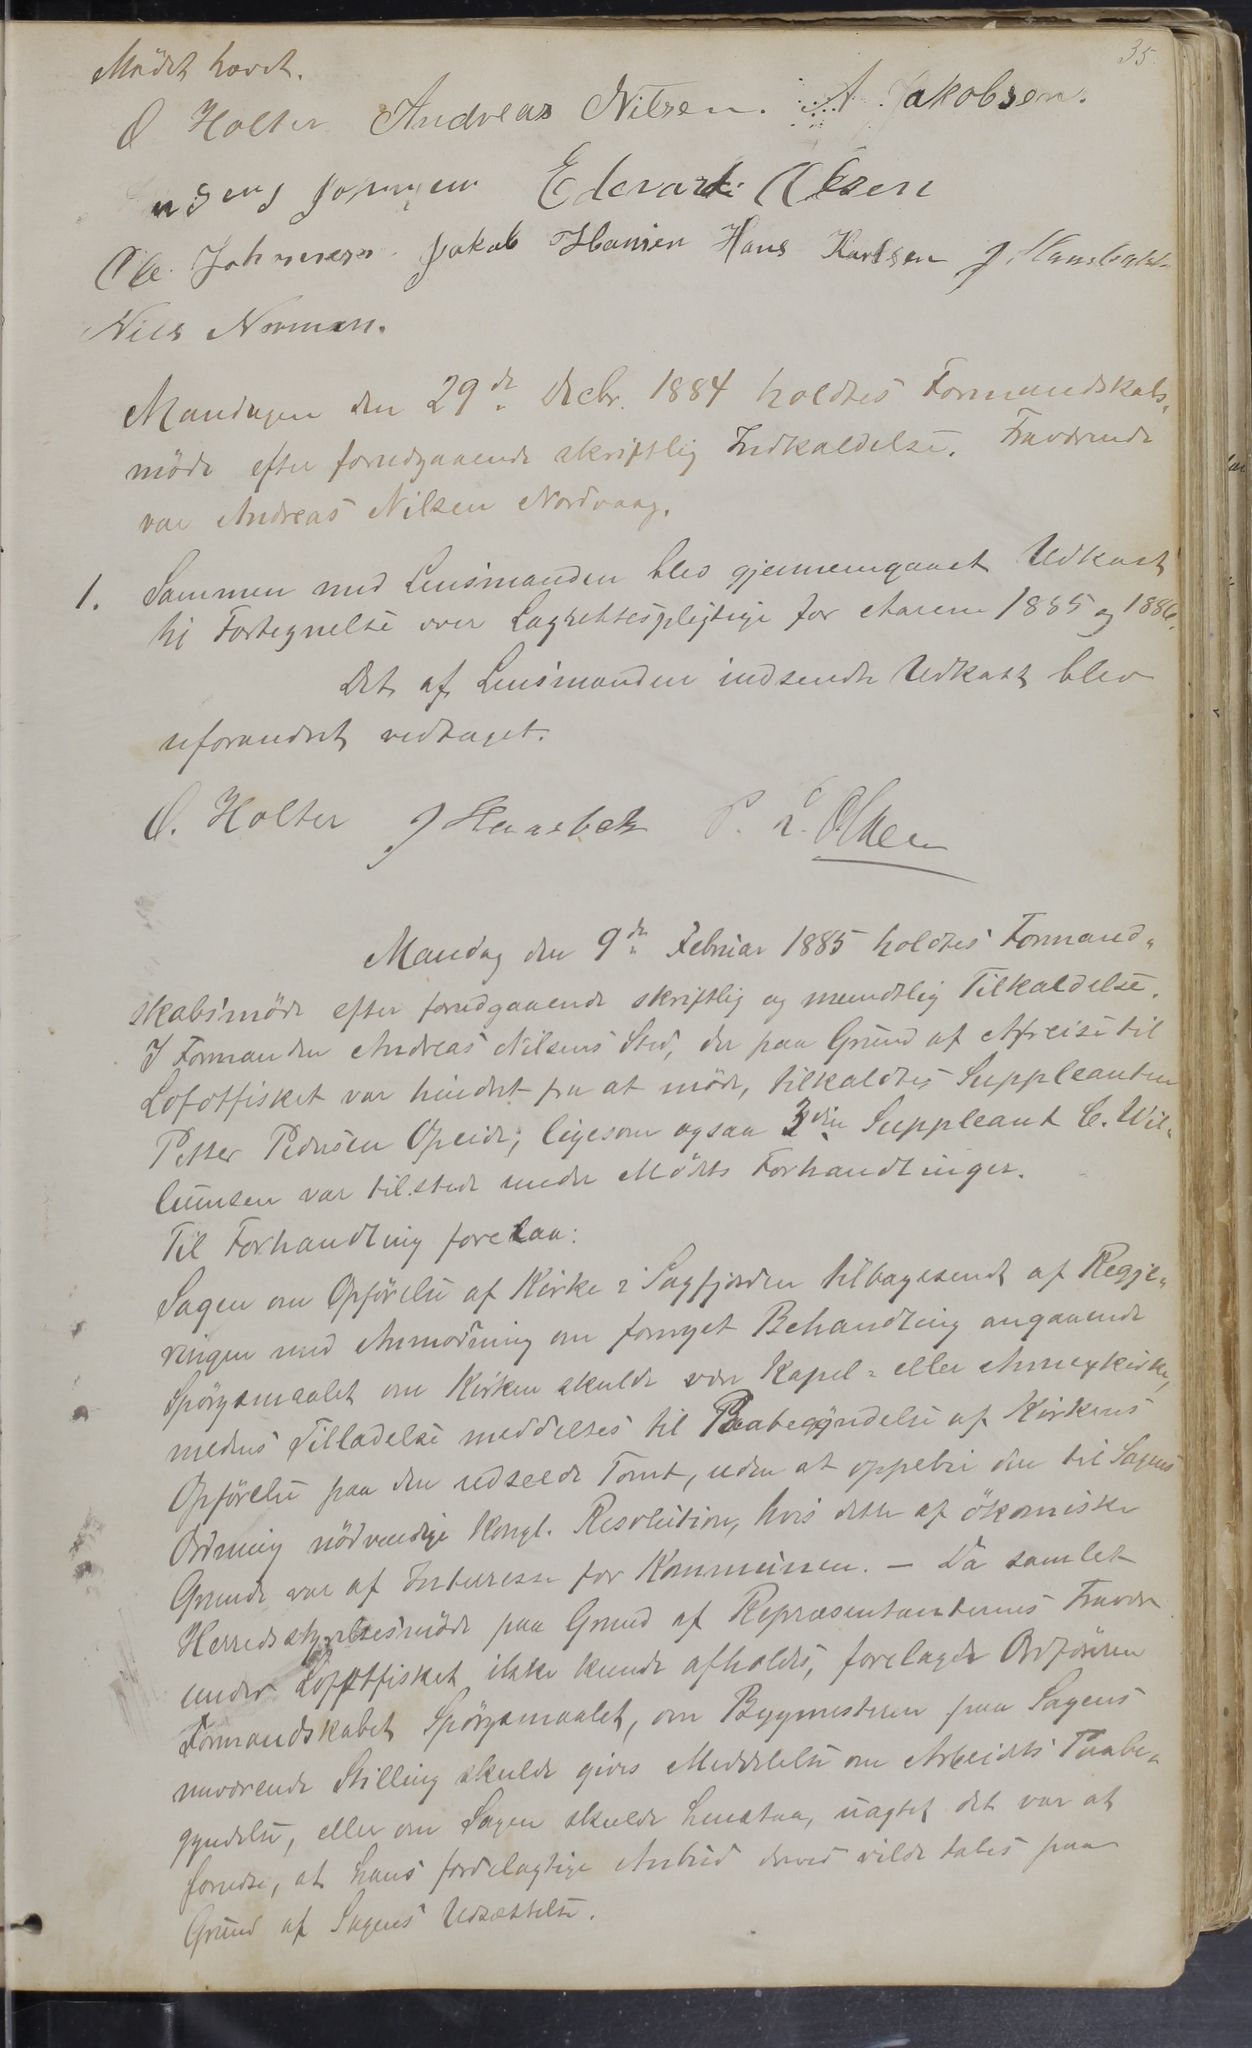 35.
Mödet hævet.
O Holter Andreas Nilsen. A Jakobsen.
Edevart Olsen
Ole Johnsen Jakob Hansen Hans Karlsen J. Hansbak
Nils Norman.
Mandagen den 29de Decbr. 1884 holdtes Formandskabs„
möde efter forudgaaende skriftlig Indkaldelse. Fraværende
var Andreas Nilsen Nordvaag.
1. Sammen med Lensmanden blev gjennemgaaet Udkast
til Fortegnelse over Lagrettespligtige for Aarene 1885 og 1886.
Det af Lensmanden indsendte Udkast blev
uforandret vedtaget.
O. Holter J Hansbak P. L. Olsen
Mandag den 9de Februar 1885 holdtes Formand„
skabsmöde efter forudgaaende skriftlig og mundtlig Tilkaldelse.
I Formanden Andreas Nilsens Sted, der paa Grund af Afreise til
Lofotfisket var hindret fra at möde, tilkaldtes Suppleanten
Petter Pedersen Opeide; ligesom ogsaa 3die Suppleant C. Wil„
lumsen var tilstede under Mödets Forhandlinger.
Til Forhandling forelaa:
Sagen om Opförelse af Kirke i Sagfjorden tilbagesendt af Regje„
ringen med Anmodning om fornyet Behandling angaaende
Spörgsmaalet om Kirken skulde være Kapel- eller Annexkirke,
medens Tilladelse meddeltes til Paabegyndelse af Kirkens
Opförelse paa den udseede Tomt, uden at oppebie den til Sagens
Ordning nödvendige Kongl. Resolution, hvis dette af ökomiske
Grunde var af Interesse for Kommunen. – Da samlet
Herredsstyrelsesmöde paa Grund af Repræsentanternes Fravær
under Lofotfisket ikke kunde afholdes, forelagde Ordföreren
Formandskabet Spörgsmaalet, om Bygmesteren paa Sagens
nuværende Stilling skulde gives Meddelelse om Arbeidets Paabe„
gyndelse, eller om Sagen skulde henstaa, uagtet det var at
forudse, at hans fordelagtige Anbud derved vilde tabes paa
Grund af Sagens Udsættelse.